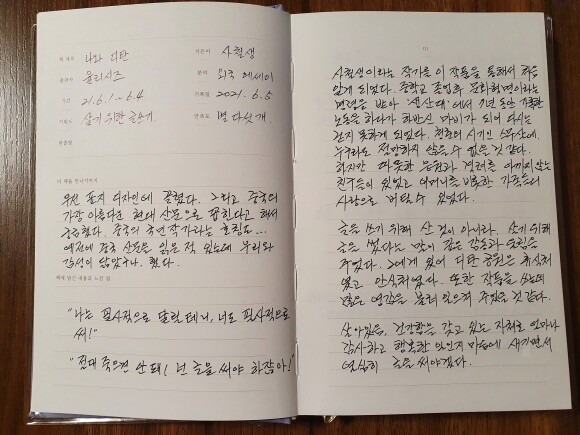 책 제목 나와 디탄 지은이 사철생
출판사 율리시즈 분야 외국 에세이
기간 21.6.1 ~ 6.4 기록일 2021. 6. 5
키워드 살기 위한 글쓰기 만족도 별 다섯개.
한줄평
이 책을 만나기까지
우선 표지 디자인에 끌렸다. 그리고 중국의
가장 아름다운 현대 산문으로 꼽힌다고 해서
궁금했다. 중국의 국민작가라는 호칭도...
예전에 중국 산문을 읽은 적 있는데 우리와
감성이 닮았구나. 했다.
책에 담긴 내용과 느낀 점
"나는 필사적으로 달릴 테니, 너도 필사적으로
써!"
"절대 죽으면 안 돼! 넌 글을 써야 하잖아!"
01
사철생이라는 작가를 이 작품을 통해서 처음
알게 되었다. 중학교 졸업후 문화혁명이라는
명령을 받아 '생산대'에서 7년 동안 가혹한
노동을 하다가 하반신 마비가 되어 다시는
걷지 못하게 되었다. 청춘의 시기인 스무살에.
누구라도 절망하지 않을 수 없을 것 같다.
하지만 따뜻한 응원과 격려를 아끼지 않는
친구들이 있었고 어머니를 비롯한 가족들의
사랑으로 버틸 수 있었다.
글을 쓰기 위해 산 것이 아니라. 살기 위해
글을 썼다는 말이 깊은 감동과 울림을
주었다. 그에게 있어 디탄 공원은 휴식처
였고 안식처였다. 또한 작품을 쓰는데
많은 영감을 불러 일으켜 주었을 것 같다.
살아있음, 건강함을 갖고 있는 자체로 얼마나
감사하고 행복한 일인지 마음에 새기면서
열심히 글을 써야겠다.